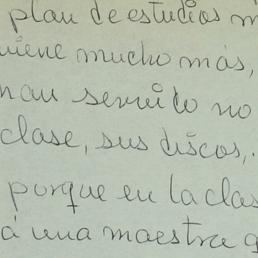 plan de estudios m
viene mucho más,
han servido no
clase, sus discos,.
porque en la clas
á una maestra q